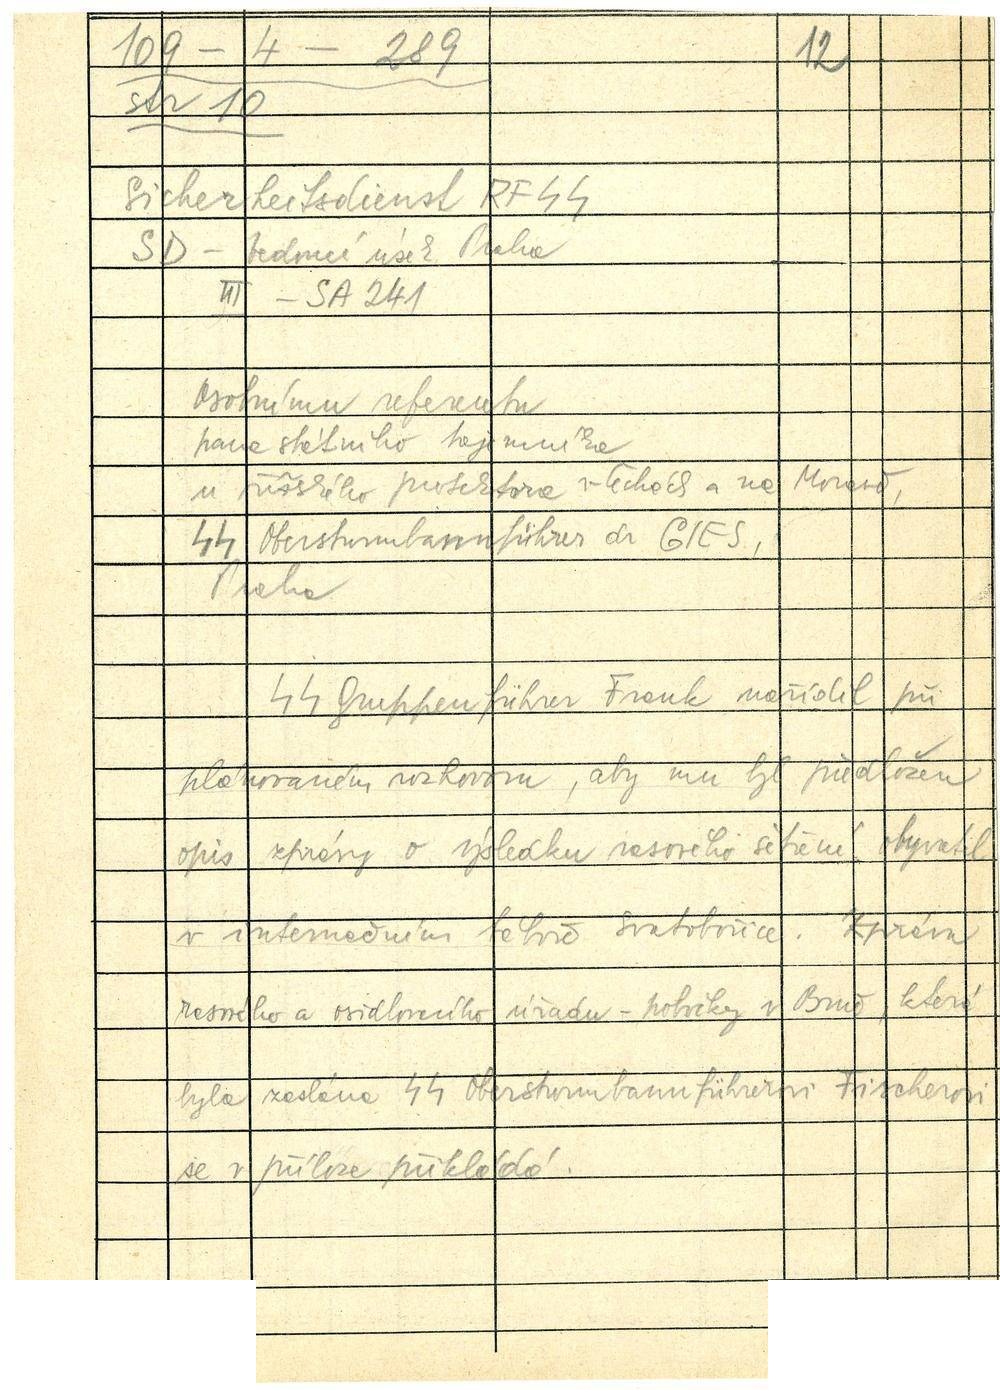 109 - 4 - 289
12
str 10
Sicherheitsdienst RFSS
SD - vedoucí úsek Praha
III - SA 241
Osobnímu referentu
pana státního tajemníka
u říšského protektora v Čechách a na Moravě,
SS Obersturmbannführer dr GIES,
Praha
SS Gruppenführer Frank nařídil při
plánovaném rozhovoru, aby mu byl předložen
opis zprávy o výsledku rasového šetření obyvatel
v internačním táboře Svatobořice. Zpráva
rasového a osidlovacího úřadu - pobočky v Brně, která
byla zaslána SS Obersturmbannführerovi Fischerovi
se v příloze přikládá.